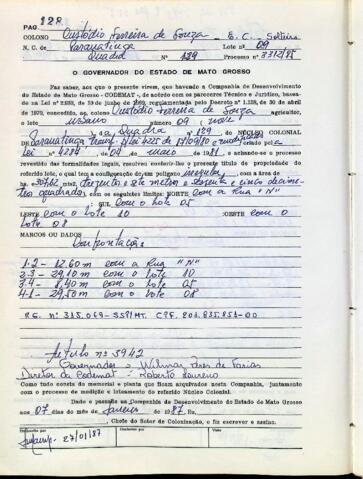 PAG. 128
COLONO Custódio Ferreira de Souza E. C. Solteiro
N. C. de Paranatinga Lote nº 09
Quadra Nº 129 Processo nº 3312/85
O GOVERNADOR DO ESTADO DE MATO GROSSO
Faz saber, aos que o presente virem, que havendo a Companhia de Desenvolvimento
do Estado de Mato Grosso - CODEMAT -, de acordo com os pareceres Técnico e Jurídico, basea-
da na Lei nº regulamentada pelo Decreto nº de 30 de abril
de concedido, ao colono Custódio Ferreira de Souza agricultor,
o lote número 09 (nove)
da Quadra nº 129 NÚCLEO COLONIAL
DE Paranatinga criado pela
Lei nº 4284 de 04 de maio 1981 e achando-se o processo
revestido das formalidades legais, resolveu conferir-lhe o presente título de propriedade
referido lote, o qual tem a configuração de um polígono irregular, com a área de
trezentos e sete metros e sessenta e cinco decíme-
tros quadrados com os seguintes limites: NORTE com a Rua "N"
SUL com o lote 05
LESTE com o lote 10 OESTE com o
lote 08
MARCOS OU DADOS Confrontações
1-2 - 12,60 m com a Rua "N"
2-3 - 29,10 m com o lote 10
3-4 - 8,40 m com o lote 05
4-1 - 29,50 m com o lote 08
R.G. nº 315.069-SSP/MT. CPF. 204.835.851-00
Título nº 5942
Governador - Wilmar Peres de Farias
Diretor da Codemat - Roberto Loureiro
Como tudo consta do memorial e planta que ficam arquivados nesta Companhia, juntamente
com o processo de medição e loteamento do referido Núcleo Colonial.
Dado e passado na Companhia de Desenvolvimento do Estado de Mato Grosso
aos 07 dias do mês de Janeiro de 1987. Eu,
, Chefe do Setor de Colonização, o fiz escrever e assino.
27/01/87
VISTO